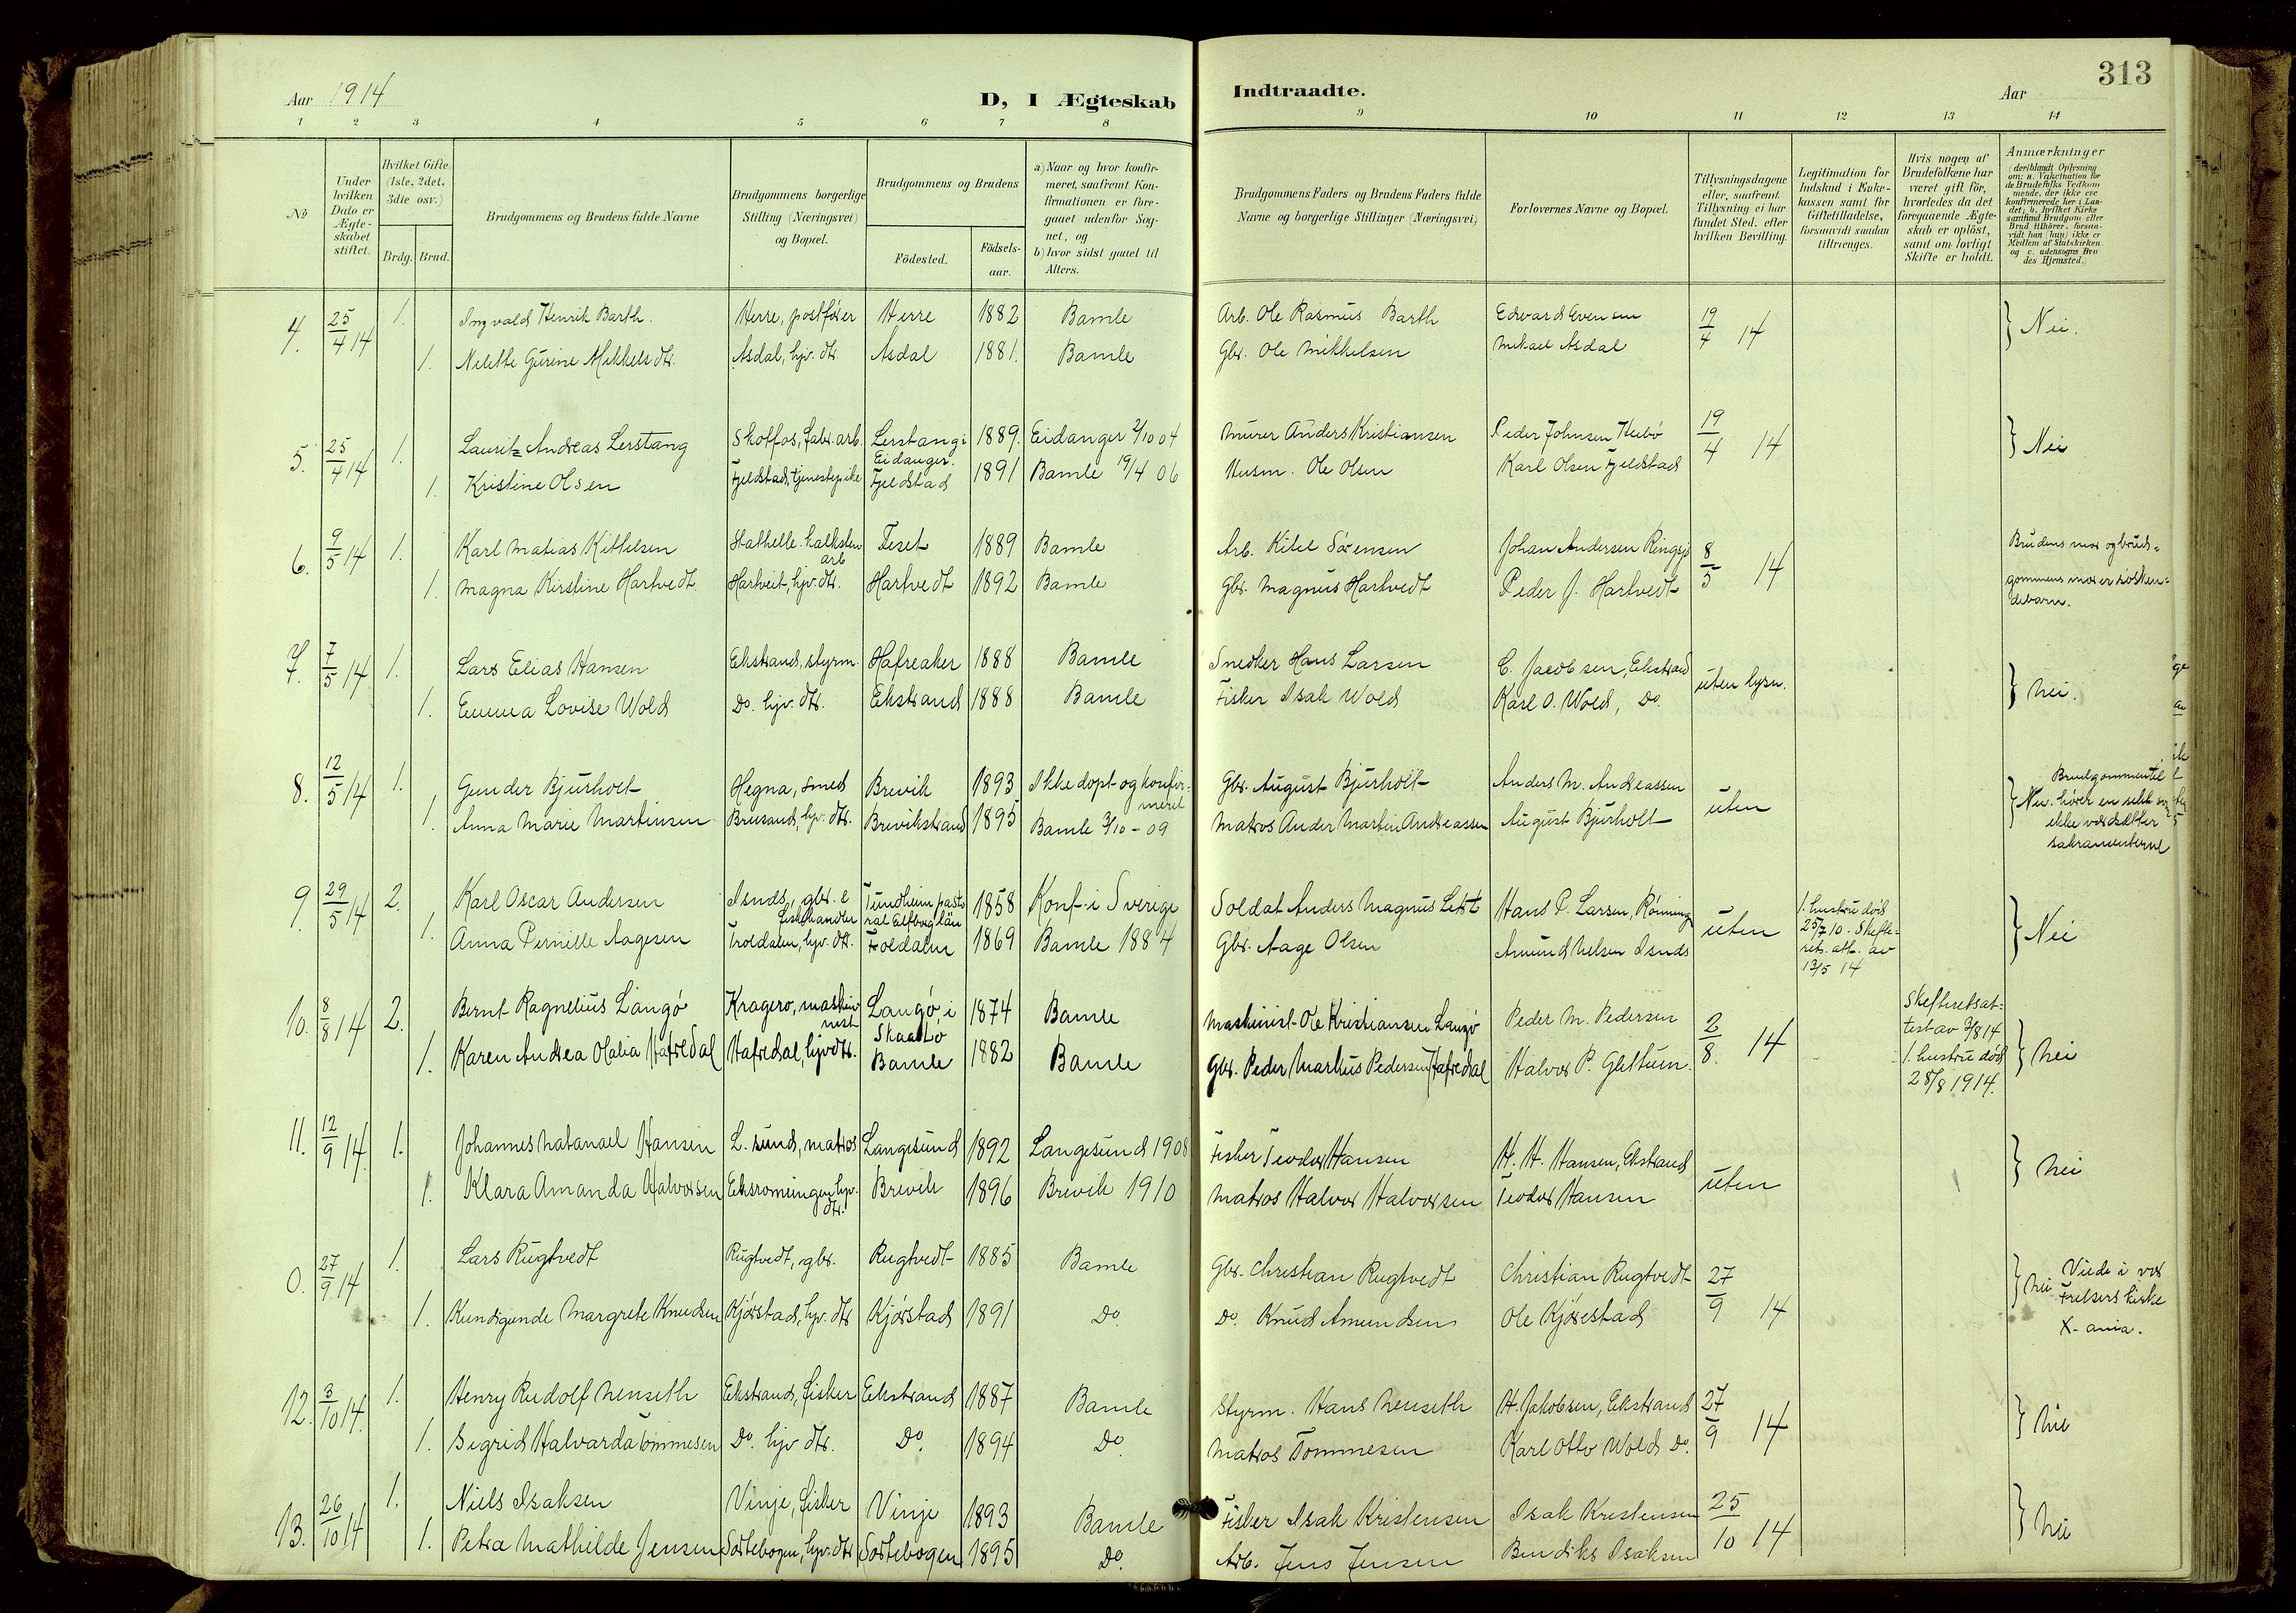 Aar 1914
D, I Ægteskab Indtraadte.
Aar
313
1 2 3 4 5 6 7 8 9 10 11 12 13 14
№
Under hvilken Dato er Ægteskabet stiftet.
Hvilket Gifte (1ste, 2det, 3die osv.)
Brdg. Brud.
Brudgommens og Brudens fulde Navne
Brudgommens borgerlige Stilling (Næringsvei) og Bopæl.
Brudgommens og Brudens
Födested.
Födsels-aar.
a) Naar og hvor konfirmeret, saafremt Konfirmationen er foregaaet udenfor Sognet, og
b) hvor sidst gaaet til Alters.
Brudgommens Faders og Brudens Faders fulde Navne og borgerlige Stillinger (Næringsvei)
Forlovernes Navne og Bopæl.
Tillysningsdagene eller, saafremt Tillysning ei har fundet Sted, efter hvilken Bevilling.
Legitimation for Indskud i Enkekassen samt for Giftetilladelse, forsaavidt saadan tiltrænges.
Hvis nogen af Brudefolkene har været gift för, hvorledes da det foregaaende Ægteskab er oplöst, samt om lovligt Skifte er holdt.
Anmærkninger
(deriblandt Oplysning om: a. Vakcination for de Brudefolks Vedkommende, der ikke ere konfirmerede her i Landet; b. hvilket Kirkesamfund Brudgom eller Brud tilhörer, forsaavidt han (hun) ikke er Medlem af Statskirken, og c. udensogns Brudes Hjemsted.)
4. 25/4 14 1. Ingvald Henrik Barth. Herre, postfører Herre 1882 Bamle Arb. Ole Rasmus Barth Edvard Evensen 19/4 14 } Nei.
1. Nelette Gurine Mikkelsdtr. Asdal, hjv. dtr. Asdal 1881. Bamle Gbr. Ole Mikkelsen Mikael Asdal
5. 25/4 14 1. Lauritz Andreas Lerstang Skotfos, fabr. arb. Lerstang i Eidanger. 1889. Eidanger 2/10 04 Murer Anders Kristiansen Peder Johnsen Heibø 19/4 14 } Nei
1. Kristine Olsen Fjeldstad, tjenestepike Fjeldstad 1891 Bamle 19/4 06 Husm. Ole Olsen Karl Olsen Fjeldstad
6. 9/5 14 1. Karl Matias Kittelsen Stathelle. kalksten arb Feset 1889 Bamle Arb. Kitel Sørensen Johan Andersen Ringsjø 8/5 14 Brudens mor og brud-
gommens mor er søsken-
debarn.
1. Magna Kirstine Hartvedt. Hartveit, hjv. dtr. Hartvedt 1892 Bamle Gbr. Magnus Hartvedt Peder J. Hartvedt
7. 7/5 14 1. Lars Elias Hansen Ekstrand, styrm. Hafreaker 1888 Bamle Snedker Hans Larsen C. Jacobsen, Ekstrand uten lysn. } Nei.
1. Emma Lovise Wold Do. hjv. dtr. Ekstrand 1888 Bamle Fisker Isak Wold Karl O. Wold, Do.
8. 12/5 14 1. Gunder Bjurholt Hegna, smed Brevik 1893 Ikke døpt og konfirmeret Gbr. August Bjurholt Anders M. Andreassen uten } Nei. Brudgommen til-
hører en sekt som
ikke værdsætter
sakramenterne
1. Anna Marie Martinsen hjv. dtr. Brevikstrand 1895 Bamle 3/10-09 Matros Ander Martin Andreassen August Bjurholt
9. 29/5 14 2. Karl Oscar Andersen gbr. e fiskehandler 1858 Konf. i Sverige Soldat Anders Magnus Hans P. Larsen, Rønning uten 1. hustru død
25/7 10. Skifte-
ret. att. av
13/5 14 } Nei
1. Anna Pernille Aagesen hjv. dtr. Foldalen 1869 Bamle 1884 Gbr. Aage Olsen Amund Nelsen Isnds
10. 8/8 14 2. Bernt Ragnelius Langø Kragerø, maskinnist Langø i Skaatø 1874 Bamle Maskinist Ole Kristiansen Langø Peder M. Pedersen 2/8. 14 Skifteretsat-
test av 3/8 14
1. hustru død
28/8 1914. } Nei
1. Karen Andrea Olalia Hafredal Hafredal, hjv dtr. Bamle 1882 Bamle Gbr. Peder Markus Pedersen Hafredal Halvor P. Glittum.
11. 12/9 14. 1. Johannes Natanael Hansen L. sund, matros Langesund 1892 Langesund 1908 Fisker Teodor Hansen H. H. Hansen, Ekstrand uten } Nei
1. Klara Amanda Halvorsen hjv. dtr. Brevik 1896 Brevik 1910 Matros Halvor Halvorsen Teodor Hansen
0. 27/9 14 1. Lars Rugtvedt Rugtvedt, gbr. Rugtvedt 1885 Bamle Gbr. Christian Rugtvedt Christian Rugtvedt 27/9 14 } Nei Viede i vor
Frelsers kirke
X-ania.
1. Kundigunde Margrete Knudsen Kjørstad, hjv. dtr Kjørstad 1891 Do. Do. Knud Amundsen Ole Kjørestad
12. 3/10 14. 1. Henry Rudolf Nenseth Ekstrand, fisker Ekstrand 1887 Bamle Styrm. Hans Nenseth H. Jakobsen, Ekstrand 27/9 14 } Nei
1. Sigrid Halvarda Tommesen Do. hjv dtr. Do. 1894 Do. Matros Tommesen Karl Otto Wold Do.
13. 26/10 14 1. Niels Isaksen Vinje, fisker Vinje 1893 Bamle Fisker Isak Kristensen Isak Kristensen 25/10 14 } Nei
1. Petra Mathilde Jensen Sortebogen, hjv. dtr Sortebogen 1895 Do. Arb. Jens Jensen Bendiks Isaksen